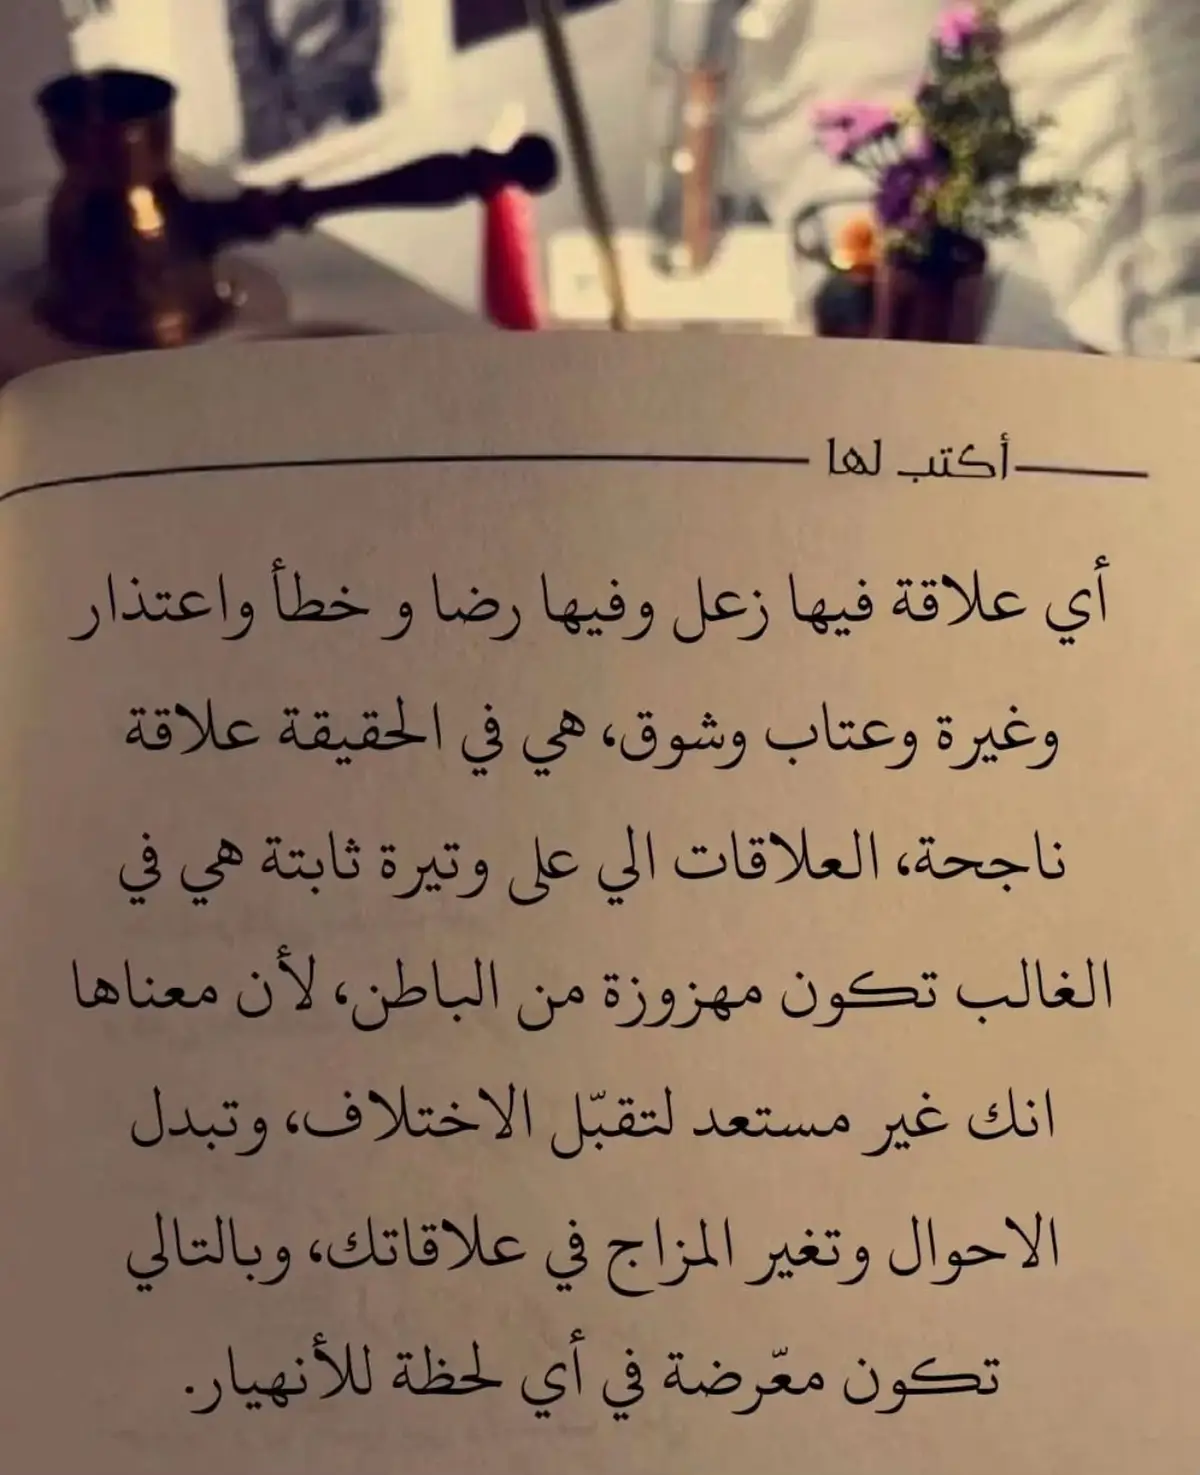 أكتب لها
أي علاقة فيها زعل وفيها رضا و خطأ واعتذار
وغيرة وعتاب وشوق، هي في الحقيقة علاقة
ناجحة، العلاقات الي على وتيرة ثابتة هي في
الغالب تكون مهزوزة من الباطن، لأن معناها
انك غير مستعد لتقبّل الاختلاف، وتبدل
الاحوال وتغير المزاج في علاقاتك، وبالتالي
تكون معّرضة في أي لحظة للأنهيار.